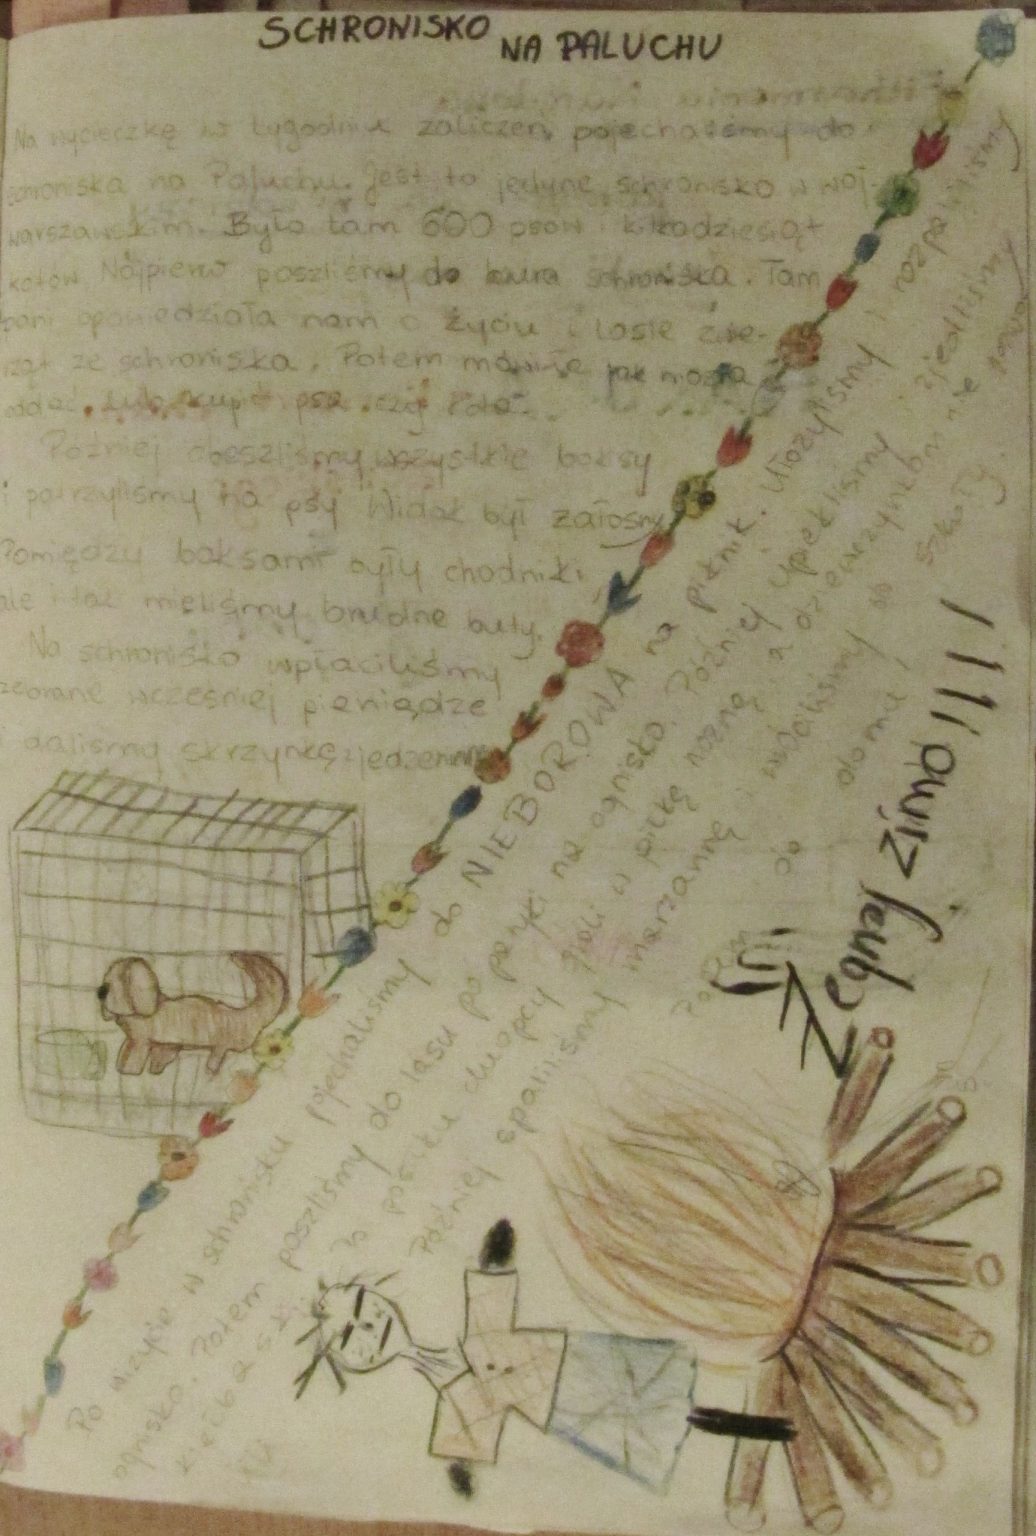 SCHRONISKO
NA PALUCHU
Na wycieczkę w tygodniu zaliczeń pojechaliśmy do
schroniska na Paluchu. Jest to jedyne schronisko w woj.
warszawskim. Było tam 600 psów i kilkadziesiąt
kotów. Najpierw poszliśmy do biura schroniska. Tam
pani opowiedziała nam o życiu i losie zwie-
rząt ze schroniska. Potem mówiła jak można
oddać lub kupić psa czy kota.
Później obeszliśmy wszystkie boksy
i patrzyliśmy na psy Widok był żałosny
Pomiędzy boksami były chodniki
ale i tak mieliśmy brudne buty.
Na schronisko wpłaciliśmy
zebrane wcześniej pieniądze
i daliśmy skrzynkę z jedzeniem
Po wizycie w schronisku pojechaliśmy do NIEBOROWA na piknik. Ułożyliśmy i rozpaliliśmy
ognisko. Potem poszliśmy do lasu po patyki na ognisko. Później upiekliśmy i zjedliśmy
Po posiłku chłopcy grali w piłkę nożną, a dziewczynki nie
Później spaliliśmy marzannę i wróciliśmy do szkoły.
Potem do domu
Żegnaj zimo !!!